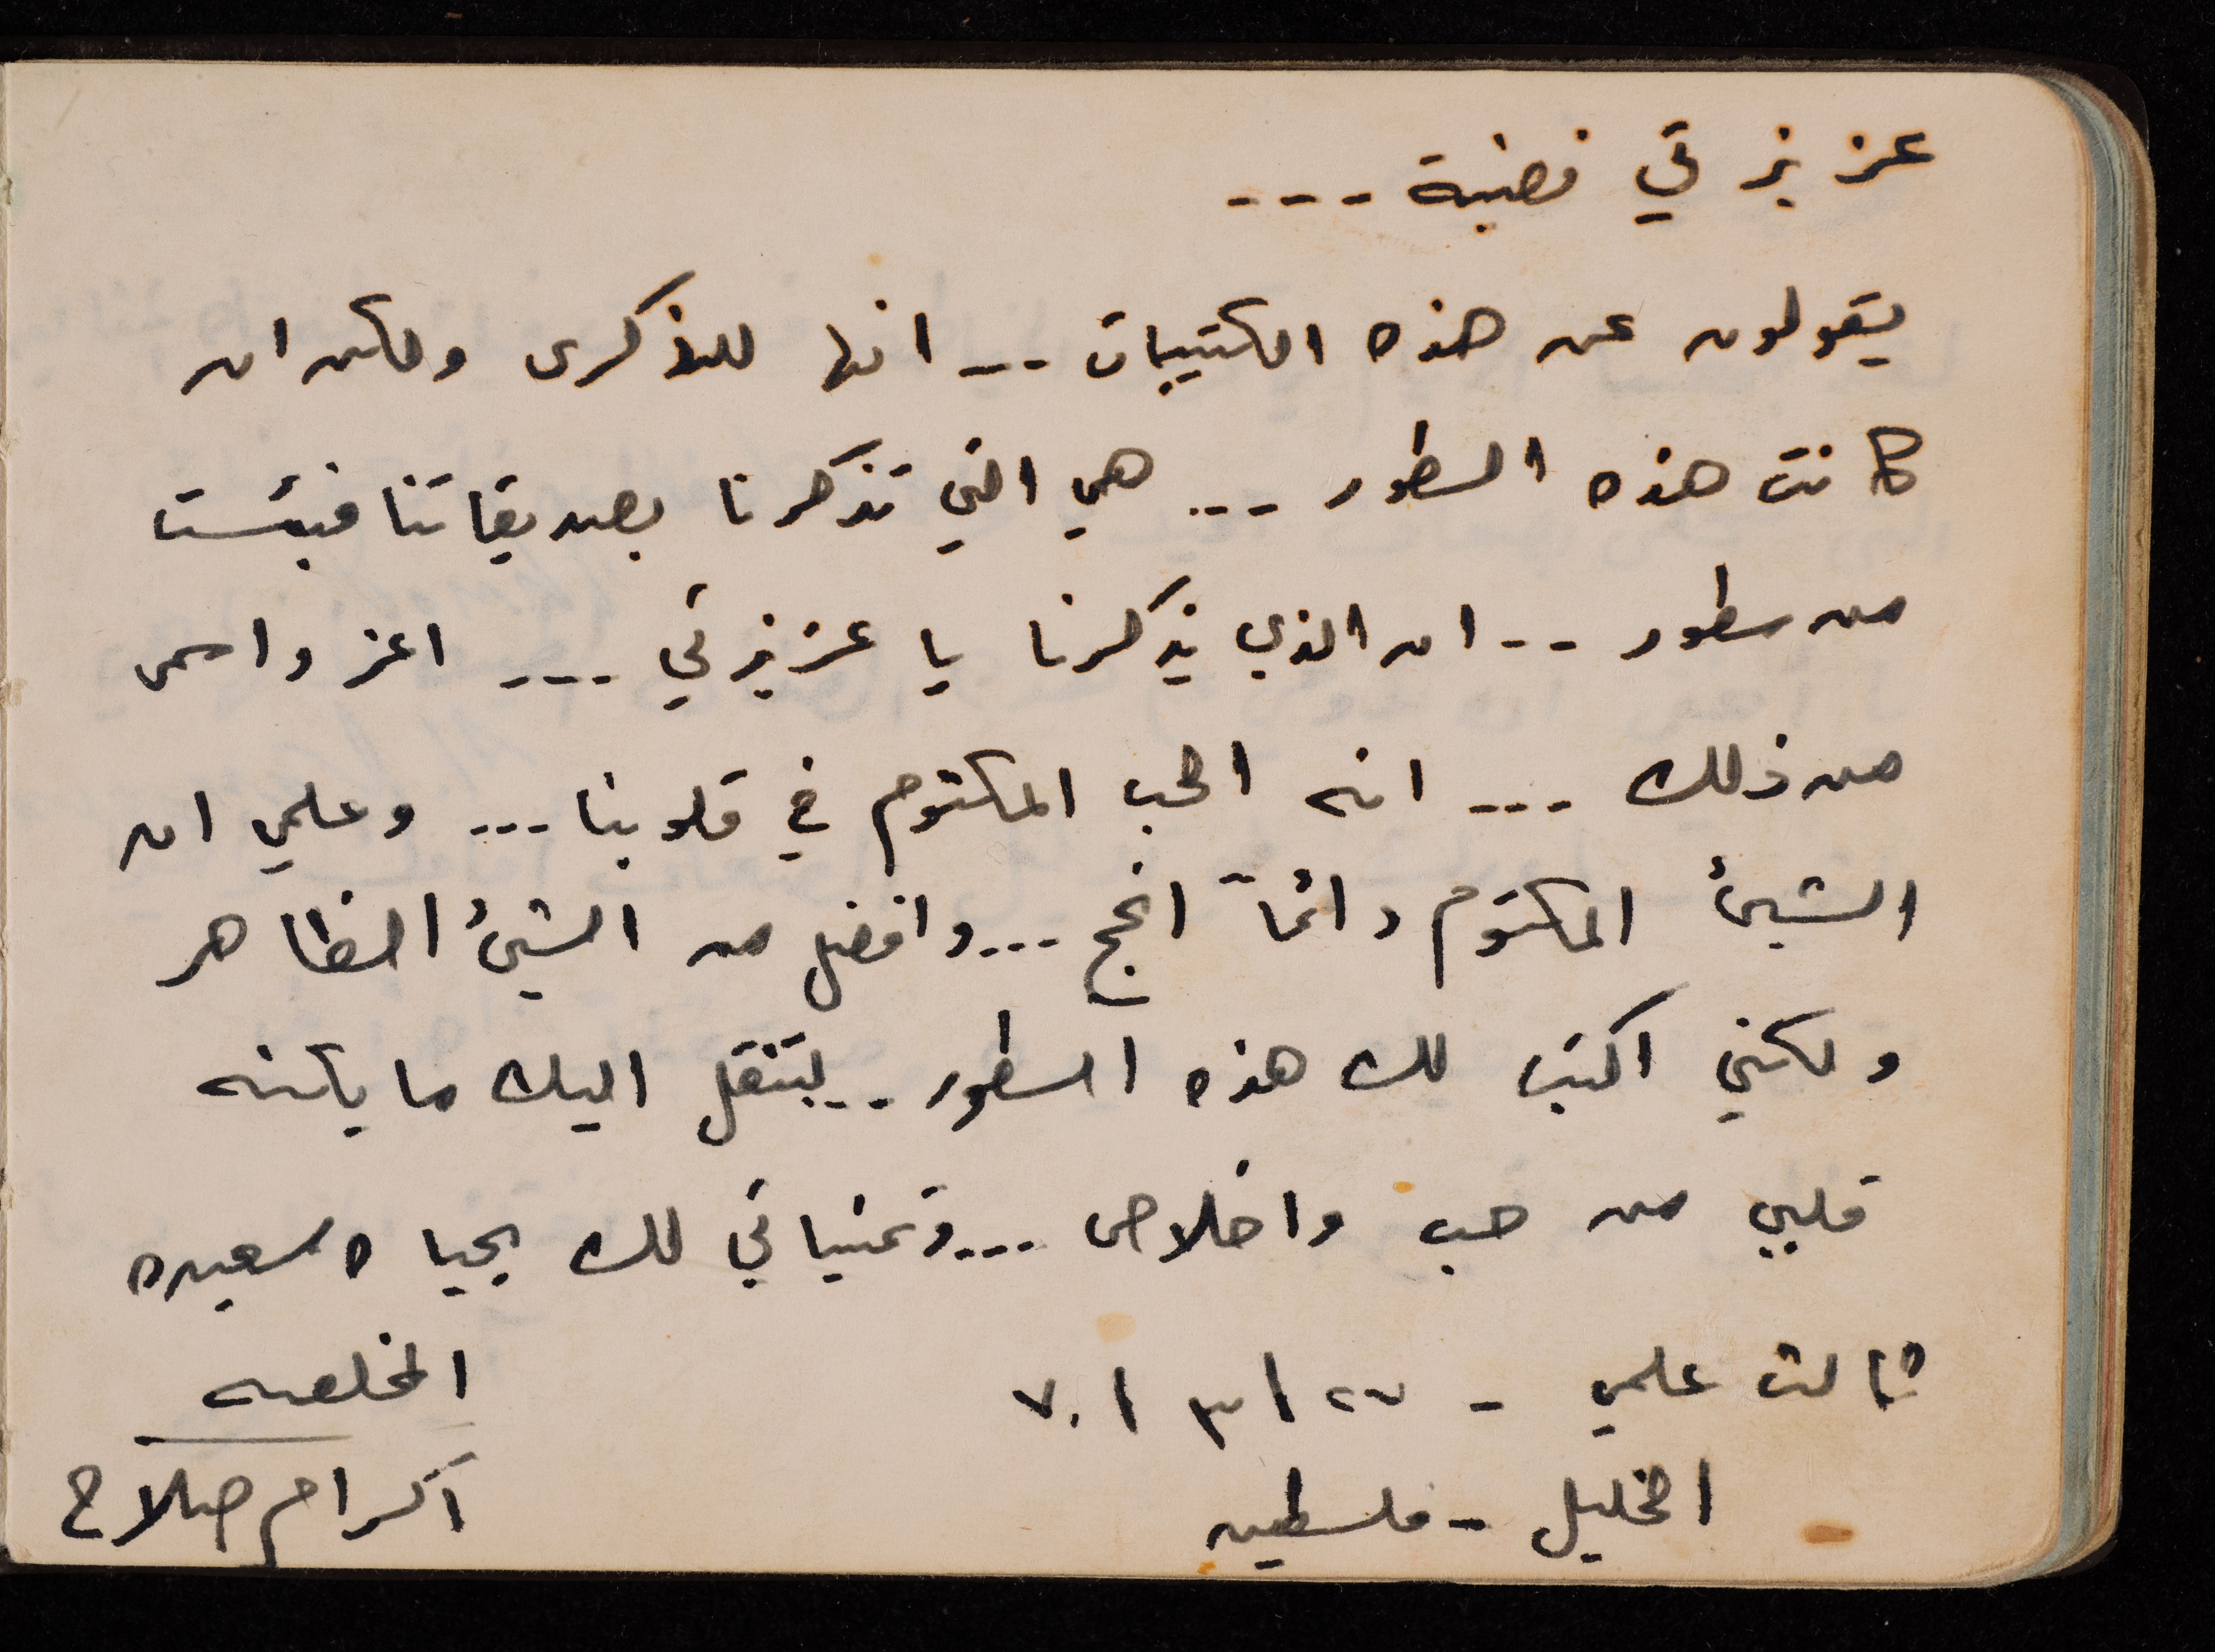 عزيزتي فضية ...
يقولون عن هذه الكتيبات ... انها للذكرى ولكن ان
كانت هذه السطور ... هي التي تذكرنا بصديقاتنا فبئست
من سطور .. ان الذي يذكرنا يا عزيزتي ... اعز واسمى
من ذلك ... انه الحب المكتوم في قلوبنا ... وعلمي ان
الشيئ المكتوم دائماً انجح ... وافضل من الشيئ الظاهر
ولكني اكتب لك هذه السطور .. لتنقل اليك ما يكنه
قلبي من حب واخلاص ... وتمنياتي لك بحياه سعيده
ثالث علمي - ٢٧ / ٣ / ٧٠
المخلصه
الخليل - فلسطين
اكرام صلاح